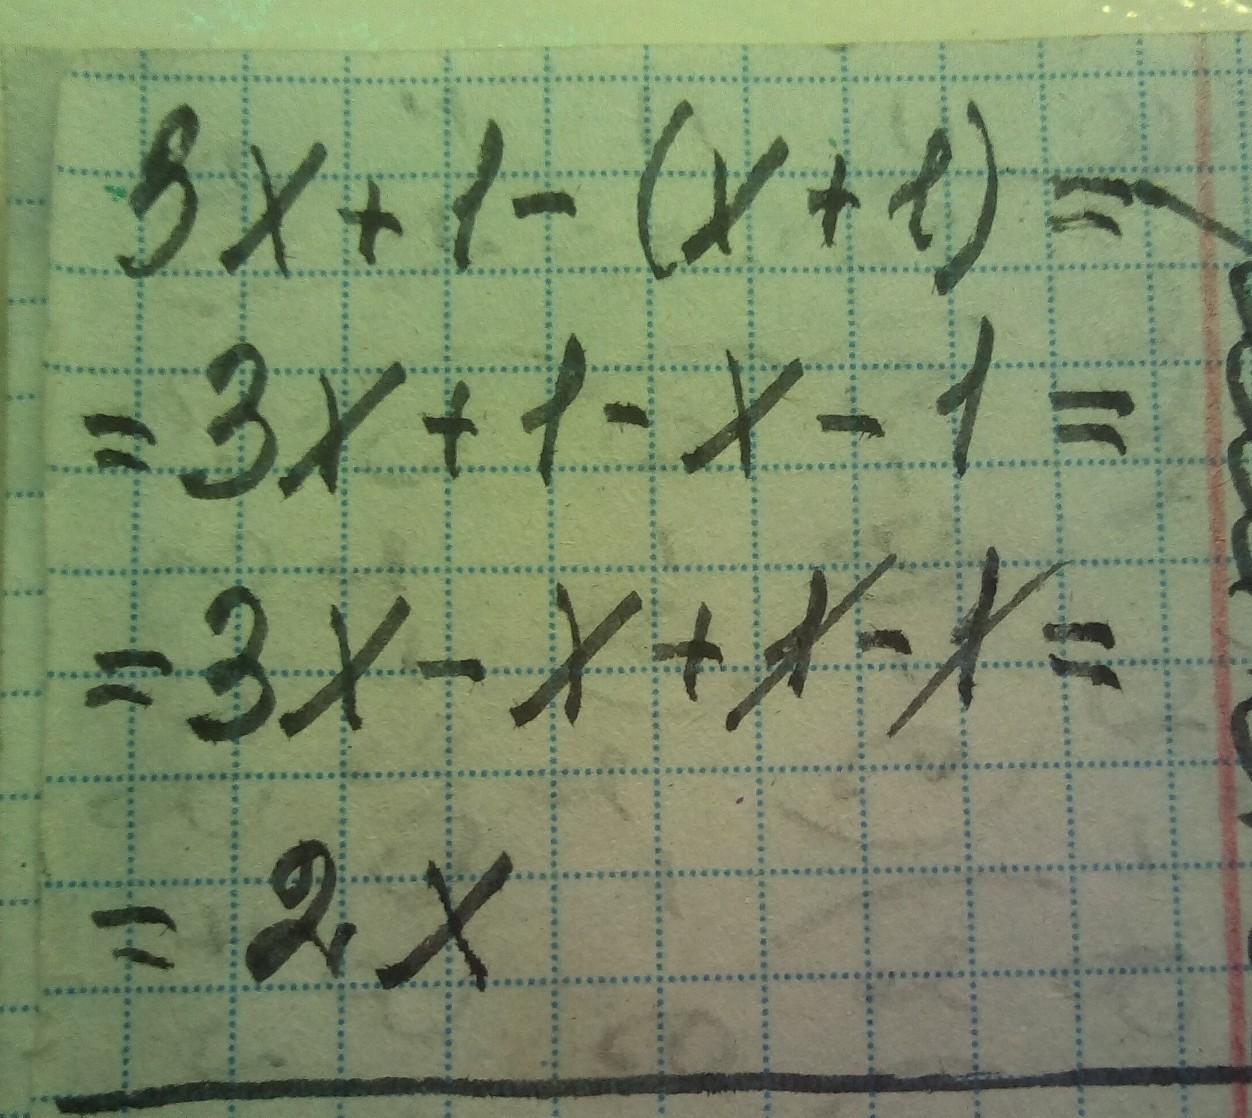 3x+1-(x+1)=
=3x+1-x-1=
=3x-x+1-1=
=2x